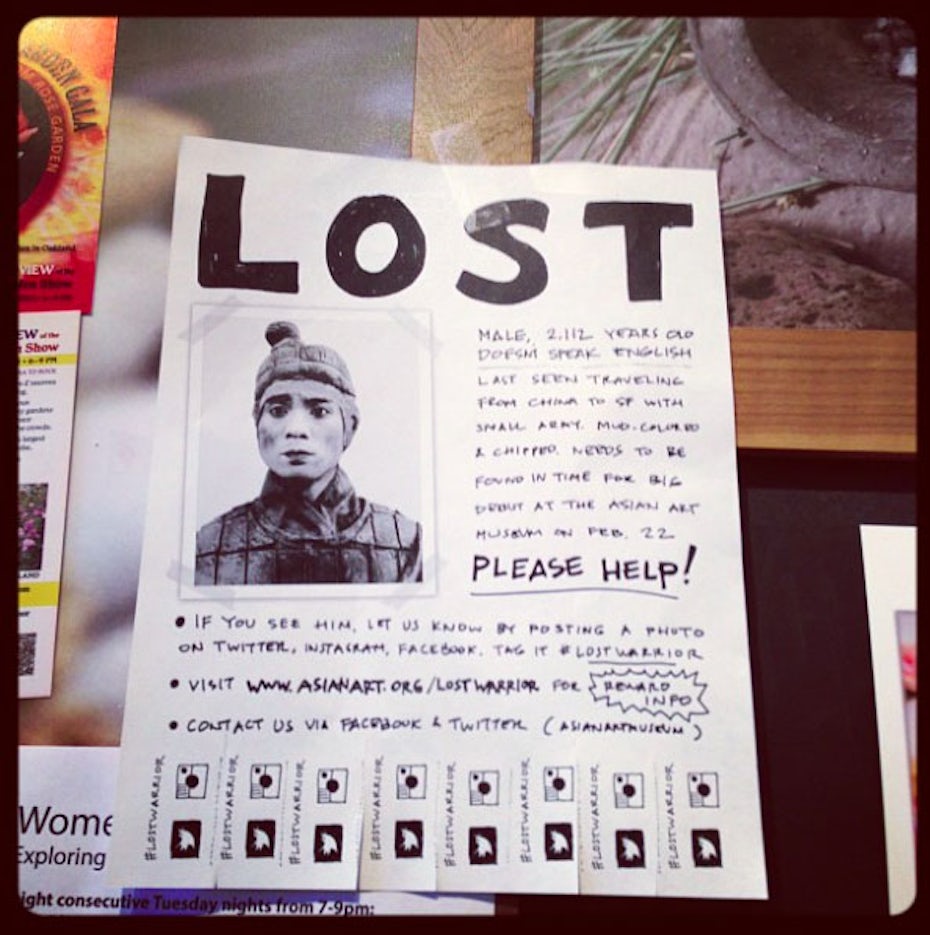 LOST
MALE, 2,112 YEARS OLD
DOESN'T SPEAK ENGLISH
LAST SEEN TRAVELING
FROM CHINA TO SF WITH
SMALL ARMY. MUD-COLORED
& CHIPPED. NEEDS TO BE
FOUND IN TIME FOR BIG
DEBUT AT THE ASIAN ART
MUSEUM ON FEB. 22
PLEASE HELP!
• IF YOU SEE HIM, LET US KNOW BY POSTING A PHOTO
ON TWITTER, INSTAGRAM, FACEBOOK. TAG IT #LOSTWARRIOR
• VISIT WWW.ASIANART.ORG/LOSTWARRIOR FOR REWARD
INFO
• CONTACT US VIA FACEBOOK & TWITTER (ASIANARTMUSEUM)
#LOSTWARRIOR
#LOSTWARRIOR
#LOSTWARRIOR
#LOSTWARRIOR
#LOSTWARRIOR
#LOSTWARRIOR
#LOSTWARRIOR
#LOSTWARRIOR
GALA
ROSE GARDEN
in Oakland
VIEW of the
Show
EW of the
Show
6-9 PM
LAND
Wome
Exploring
ight consecutive Tuesday nights from 7-9pm: